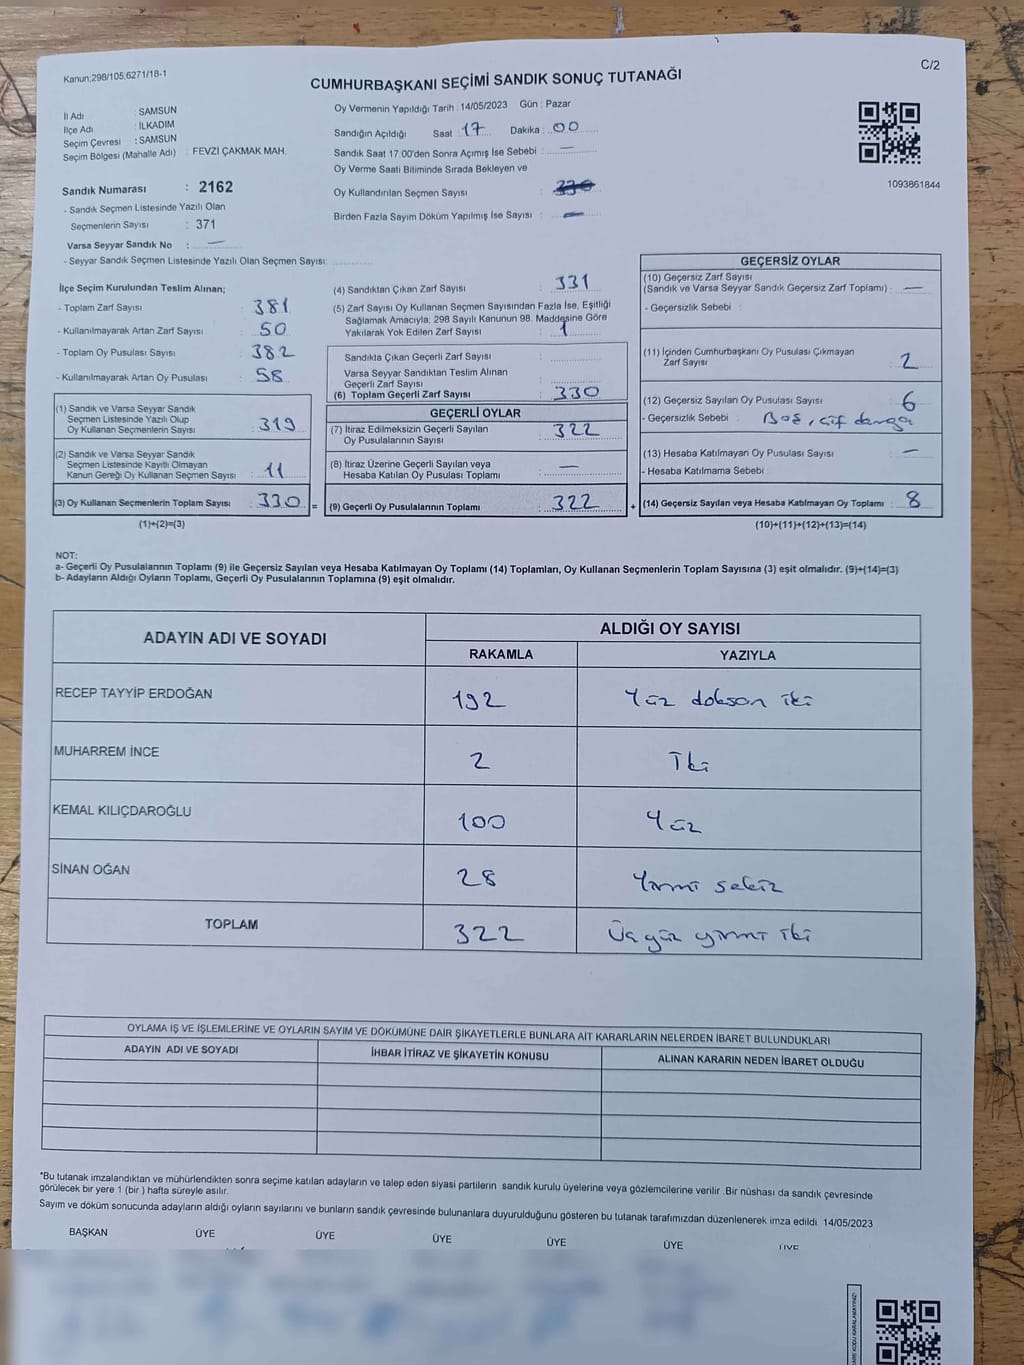 Kanun;298/105;6271/18-1
C/2
CUMHURBAŞKANI SEÇİMİ SANDIK SONUÇ TUTANAĞI
İl Adı : SAMSUN
İlçe Adı : İLKADIM
Seçim Çevresi : SAMSUN
Seçim Bölgesi (Mahalle Adı) : FEVZİ ÇAKMAK MAH.
Sandık Numarası : 2162
- Sandık Seçmen Listesinde Yazılı Olan
Seçmenlerin Sayısı : 371
Varsa Seyyar Sandık No : —
- Seyyar Sandık Seçmen Listesinde Yazılı Olan Seçmen Sayısı:
Oy Vermenin Yapıldığı Tarih : 14/05/2023 Gün : Pazar
Sandığın Açıldığı Saat : 17 Dakika : 00
Sandık Saat 17.00'den Sonra Açımış İse Sebebi : —
Oy Verme Saati Bitiminde Sırada Bekleyen ve
Oy Kullandırılan Seçmen Sayısı :
Birden Fazla Sayım Döküm Yapılmış İse Sayısı : —
1093861844
İlçe Seçim Kurulundan Teslim Alınan;
- Toplam Zarf Sayısı : 381
- Kullanılmayarak Artan Zarf Sayısı : 50
- Toplam Oy Pusulası Sayısı : 382
- Kullanılmayarak Artan Oy Pusulası : 58
(1) Sandık ve Varsa Seyyar Sandık
Seçmen Listesinde Yazılı Olup
Oy Kullanan Seçmenlerin Sayısı : 319
(2) Sandık ve Varsa Seyyar Sandık
Seçmen Listesinde Kayıtlı Olmayan
Kanun Gereği Oy Kullanan Seçmen Sayısı : 11
(3) Oy Kullanan Seçmenlerin Toplam Sayısı : 330
(1)+(2)=(3)
=
(4) Sandıktan Çıkan Zarf Sayısı : 331
(5) Zarf Sayısı Oy Kullanan Seçmen Sayısından Fazla İse, Eşitliği
Sağlamak Amacıyla; 298 Sayılı Kanunun 98. Maddesine Göre
Yakılarak Yok Edilen Zarf Sayısı : 1
Sandıkta Çıkan Geçerli Zarf Sayısı :
Varsa Seyyar Sandıktan Teslim Alınan
Geçerli Zarf Sayısı :
(6) Toplam Geçerli Zarf Sayısı : 330
GEÇERLİ OYLAR
(7) İtiraz Edilmeksizin Geçerli Sayılan
Oy Pusulalarının Sayısı : 322
(8) İtiraz Üzerine Geçerli Sayılan veya
Hesaba Katılan Oy Pusulası Toplamı : —
(9) Geçerli Oy Pusulalarının Toplamı : 322
+
GEÇERSİZ OYLAR
(10) Geçersiz Zarf Sayısı
(Sandık ve Varsa Seyyar Sandık Geçersiz Zarf Toplamı) : —
- Geçersizlik Sebebi :
(11) İçinden Cumhurbaşkanı Oy Pusulası Çıkmayan
Zarf Sayısı : 2
(12) Geçersiz Sayılan Oy Pusulası Sayısı : 6
- Geçersizlik Sebebi : Boş, çif damga
(13) Hesaba Katılmayan Oy Pusulası Sayısı : —
- Hesaba Katılmama Sebebi :
(14) Geçersiz Sayılan veya Hesaba Katılmayan Oy Toplamı : 8
(10)+(11)+(12)+(13)=(14)
NOT:
a- Geçerli Oy Pusulalarının Toplamı (9) ile Geçersiz Sayılan veya Hesaba Katılmayan Oy Toplamı (14) Toplamları, Oy Kullanan Seçmenlerin Toplam Sayısına (3) eşit olmalıdır. (9)+(14)=(3)
b- Adayların Aldığı Oyların Toplamı, Geçerli Oy Pusulalarının Toplamına (9) eşit olmalıdır.
ADAYIN ADI VE SOYADI
ALDIĞI OY SAYISI
RAKAMLA YAZIYLA
RECEP TAYYİP ERDOĞAN 192 Yüz doksan iki
MUHARREM İNCE 2 İki
KEMAL KILIÇDAROĞLU 100 Yüz
SİNAN OĞAN 28 Yirmi sekiz
TOPLAM 322 Üçyüz yirmi iki
OYLAMA İŞ VE İŞLEMLERİNE VE OYLARIN SAYIM VE DÖKÜMÜNE DAİR ŞİKAYETLERLE BUNLARA AİT KARARLARIN NELERDEN İBARET BULUNDUKLARI
ADAYIN ADI VE SOYADI İHBAR İTİRAZ VE ŞİKAYETİN KONUSU ALINAN KARARIN NEDEN İBARET OLDUĞU
*Bu tutanak imzalandıktan ve mühürlendikten sonra seçime katılan adayların ve talep eden siyasi partilerin sandık kurulu üyelerine veya gözlemcilerine verilir .Bir nüshası da sandık çevresinde
görülecek bir yere 1 (bir ) hafta süreyle asılır.
Sayım ve döküm sonucunda adayların aldığı oyların sayılarını ve bunların sandık çevresinde bulunanlara duyurulduğunu gösteren bu tutanak tarafımızdan düzenlenerek imza edildi. 14/05/2023
BAŞKAN ÜYE ÜYE ÜYE ÜYE ÜYE ÜYE